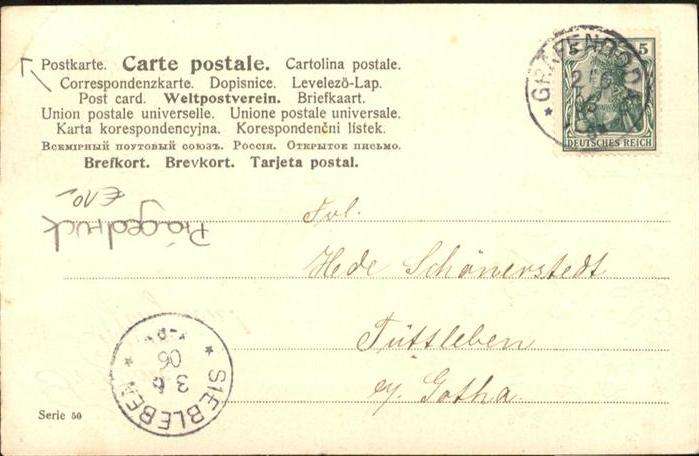 Postkarte. Carte postale. Cartolina postale.
Correspondenzkarte. Dopisnice. Levelező-Lap.
Post card. Weltpostverein. Briefkaart.
Union postale universelle. Unione postale universale.
Karta korespondencyjna. Korespondenční lístek.
Всемірный почтовый союзъ. Россія. Открытое письмо.
Brefkort. Brevkort. Tarjeta postal.
5
DEUTSCHES REICH
Prägedruck
€10,
Frl.
Hede Schönerstedt
Tüttleben
b/ Gotha.
SIEBLEBEN
3 6
06
Serie 50